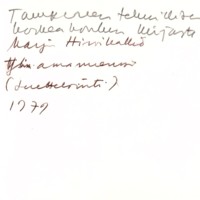 Tampereen teknillisen
korkeakoulun kirjasto
Marja Hirsikallio
amanuenssi
(luettelointi)
1979